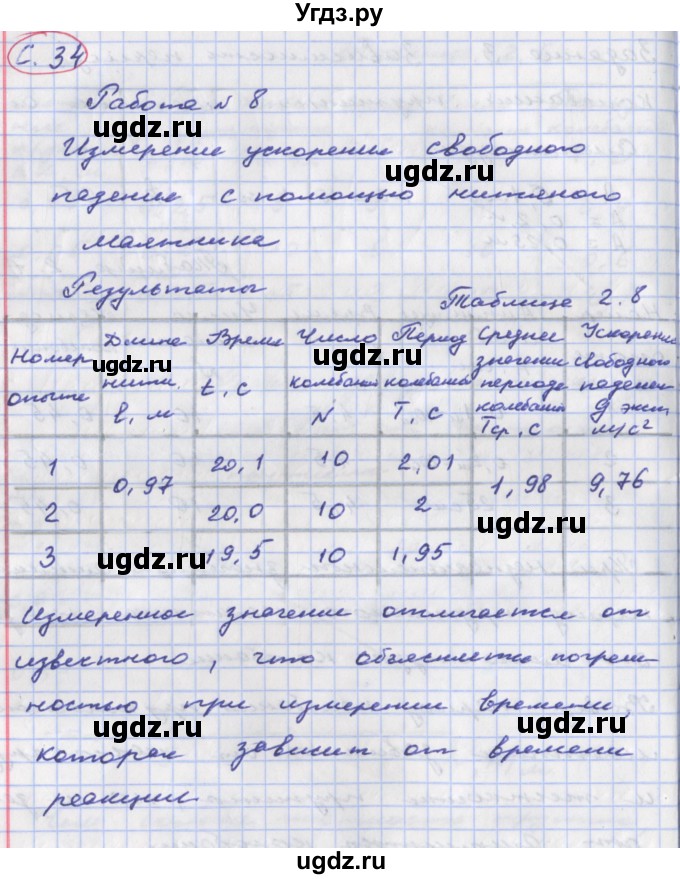 Угдз.ру
С. 34
Работа № 8
ugdz.ru
Измерение ускорения свободного
ugdz.ru
падения с помощью нитяного
маятника
ugdz.ru
Результаты
Таблица 2.8
Номер опыта | Длина нити l, м | Время t, с | Число колебаний N | Период колебаний T, с | Среднее значение периода колебаний Tср, с | Ускорение свободного падения g эксп м/с²
ugdz.ru
1 | 0,97 | 20,1 | 10 | 2,01 | 1,98 | 9,76
ugdz.ru
2 | 20,0 | 10 | 2
3 | 19,5 | 10 | 1,95
ugdz.ru
Измеренное значение отличается от
ugdz.ru
известного, что объясняется погреш-
ностью при измерении времени,
ugdz.ru
ugdz.ru
которая зависит от времени
реакции
ugdz.ru
ugdz.ru